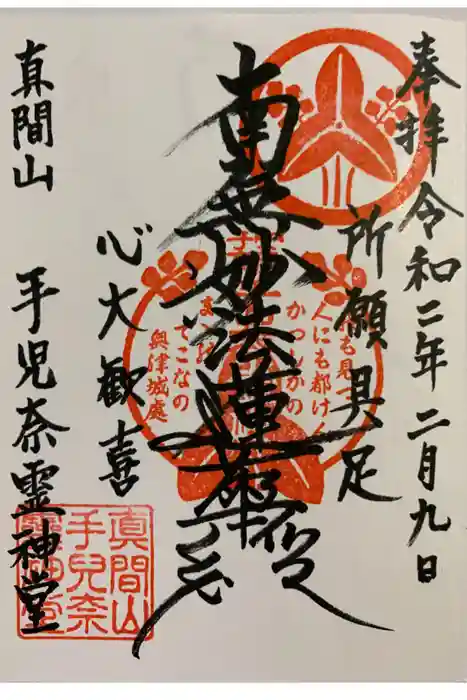 奉拝 令和二年 二月九日
所願具足
南無妙法蓮華経
心大歓喜
真間山 手児奈霊神堂
も見つ
人にも都けん
かつしかの
てこなの
奥津城處
真間山
手兒奈
靈神堂